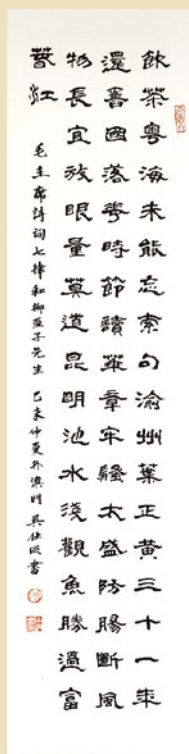 飲茶粵海未能忘索句渝州葉正黃三十一年
還舊國落花時節讀華章牢騷太盛防腸斷風
物長宜放眼量莫道昆明池水淺觀魚勝過富
春江
毛主席詩詞七律和柳亞子先生 己未仲夏於 吳仕書